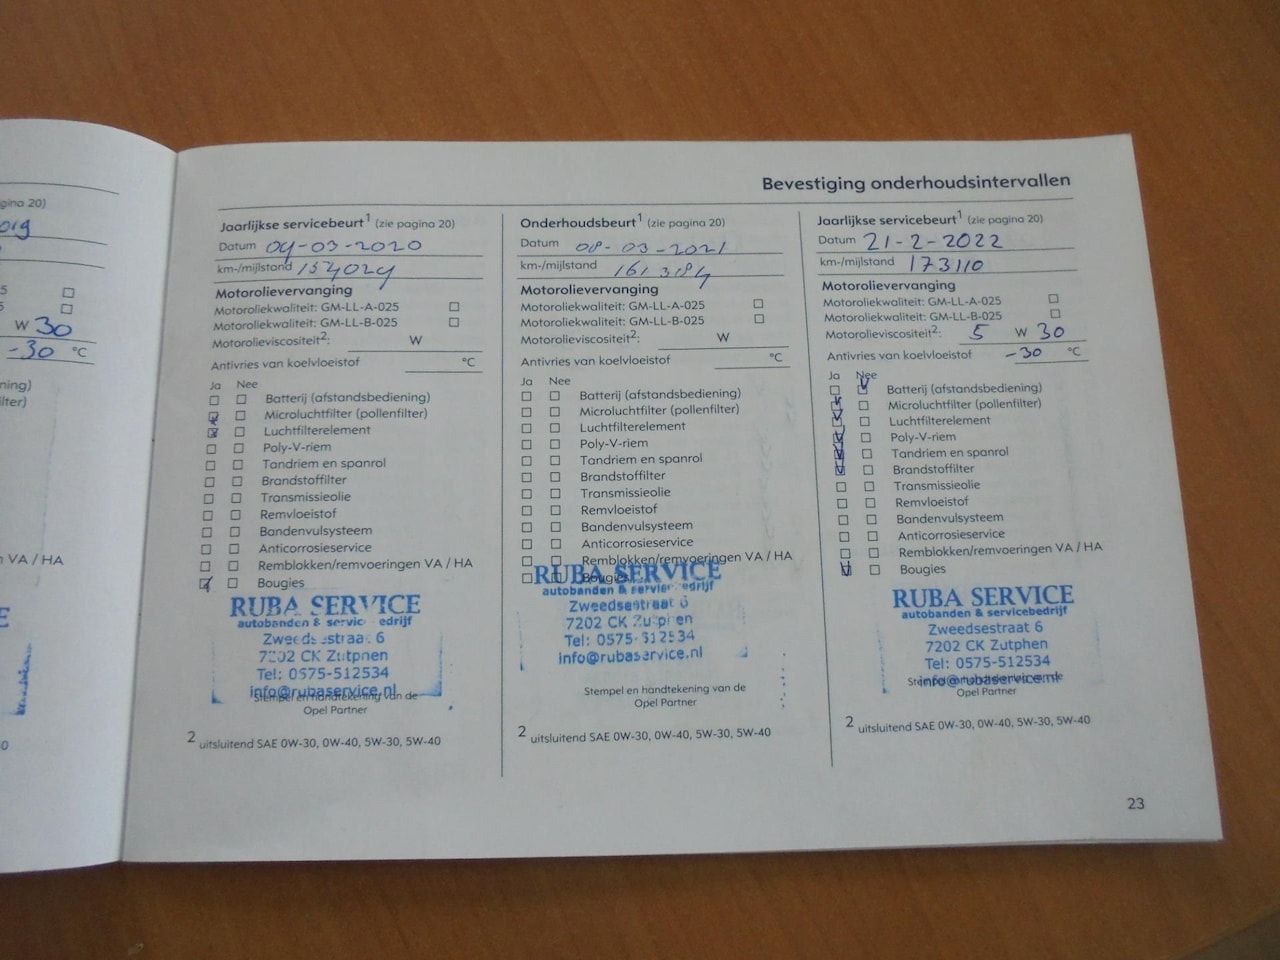 gina 20)
W 30
-30 °C
ning)
lter)
n VA / HA
Bevestiging onderhoudsintervallen
Jaarlijkse servicebeurt¹ (zie pagina 20)
Datum 04-03-2020
km-/mijlstand 154024
Motorolievervanging
Motoroliekwaliteit: GM-LL-A-025
Motoroliekwaliteit: GM-LL-B-025
Motorolieviscositeit²: W
Antivries van koelvloeistof °C
Ja Nee
Batterij (afstandsbediening)
Microluchtfilter (pollenfilter)
Luchtfilterelement
Poly-V-riem
Tandriem en spanrol
Brandstoffilter
Transmissieolie
Remvloeistof
Bandenvulsysteem
Anticorrosieservice
Remblokken/remvoeringen VA / HA
Bougies
RUBA SERVICE
autobanden & servic edrijf
Zweedsestraat 6
7202 CK Zutphen
Tel: 0575-512534
info@rubaservice.nl
Stempel en handtekening van de
Opel Partner
2 uitsluitend SAE 0W-30, 0W-40, 5W-30, 5W-40
Onderhoudsbeurt¹ (zie pagina 20)
Datum 08-03-2021
km-/mijlstand 161384
Motorolievervanging
Motoroliekwaliteit: GM-LL-A-025
Motoroliekwaliteit: GM-LL-B-025
Motorolieviscositeit²: W
Antivries van koelvloeistof °C
Ja Nee
Batterij (afstandsbediening)
Microluchtfilter (pollenfilter)
Luchtfilterelement
Poly-V-riem
Tandriem en spanrol
Brandstoffilter
Transmissieolie
Remvloeistof
Bandenvulsysteem
Anticorrosieservice
Remblokken/remvoeringen VA / HA
Bougies
RUBA SERVICE
autobanden & servicebedrijf
Zweedsestraat 6
7202 CK Zutphen
Tel: 0575-512534
info@rubaservice.nl
Stempel en handtekening van de
Opel Partner
2 uitsluitend SAE 0W-30, 0W-40, 5W-30, 5W-40
Jaarlijkse servicebeurt¹ (zie pagina 20)
Datum 21-2-2022
km-/mijlstand 173110
Motorolievervanging
Motoroliekwaliteit: GM-LL-A-025
Motoroliekwaliteit: GM-LL-B-025
Motorolieviscositeit²: 5 W 30
Antivries van koelvloeistof -30 °C
Ja Nee
Batterij (afstandsbediening)
Microluchtfilter (pollenfilter)
Luchtfilterelement
Poly-V-riem
Tandriem en spanrol
Brandstoffilter
Transmissieolie
Remvloeistof
Bandenvulsysteem
Anticorrosieservice
Remblokken/remvoeringen VA / HA
Bougies
RUBA SERVICE
autobanden & servicebedrijf
Zweedsestraat 6
7202 CK Zutphen
Tel: 0575-512534
info@rubaservice.nl
Opel Partner
2 uitsluitend SAE 0W-30, 0W-40, 5W-30, 5W-40
23